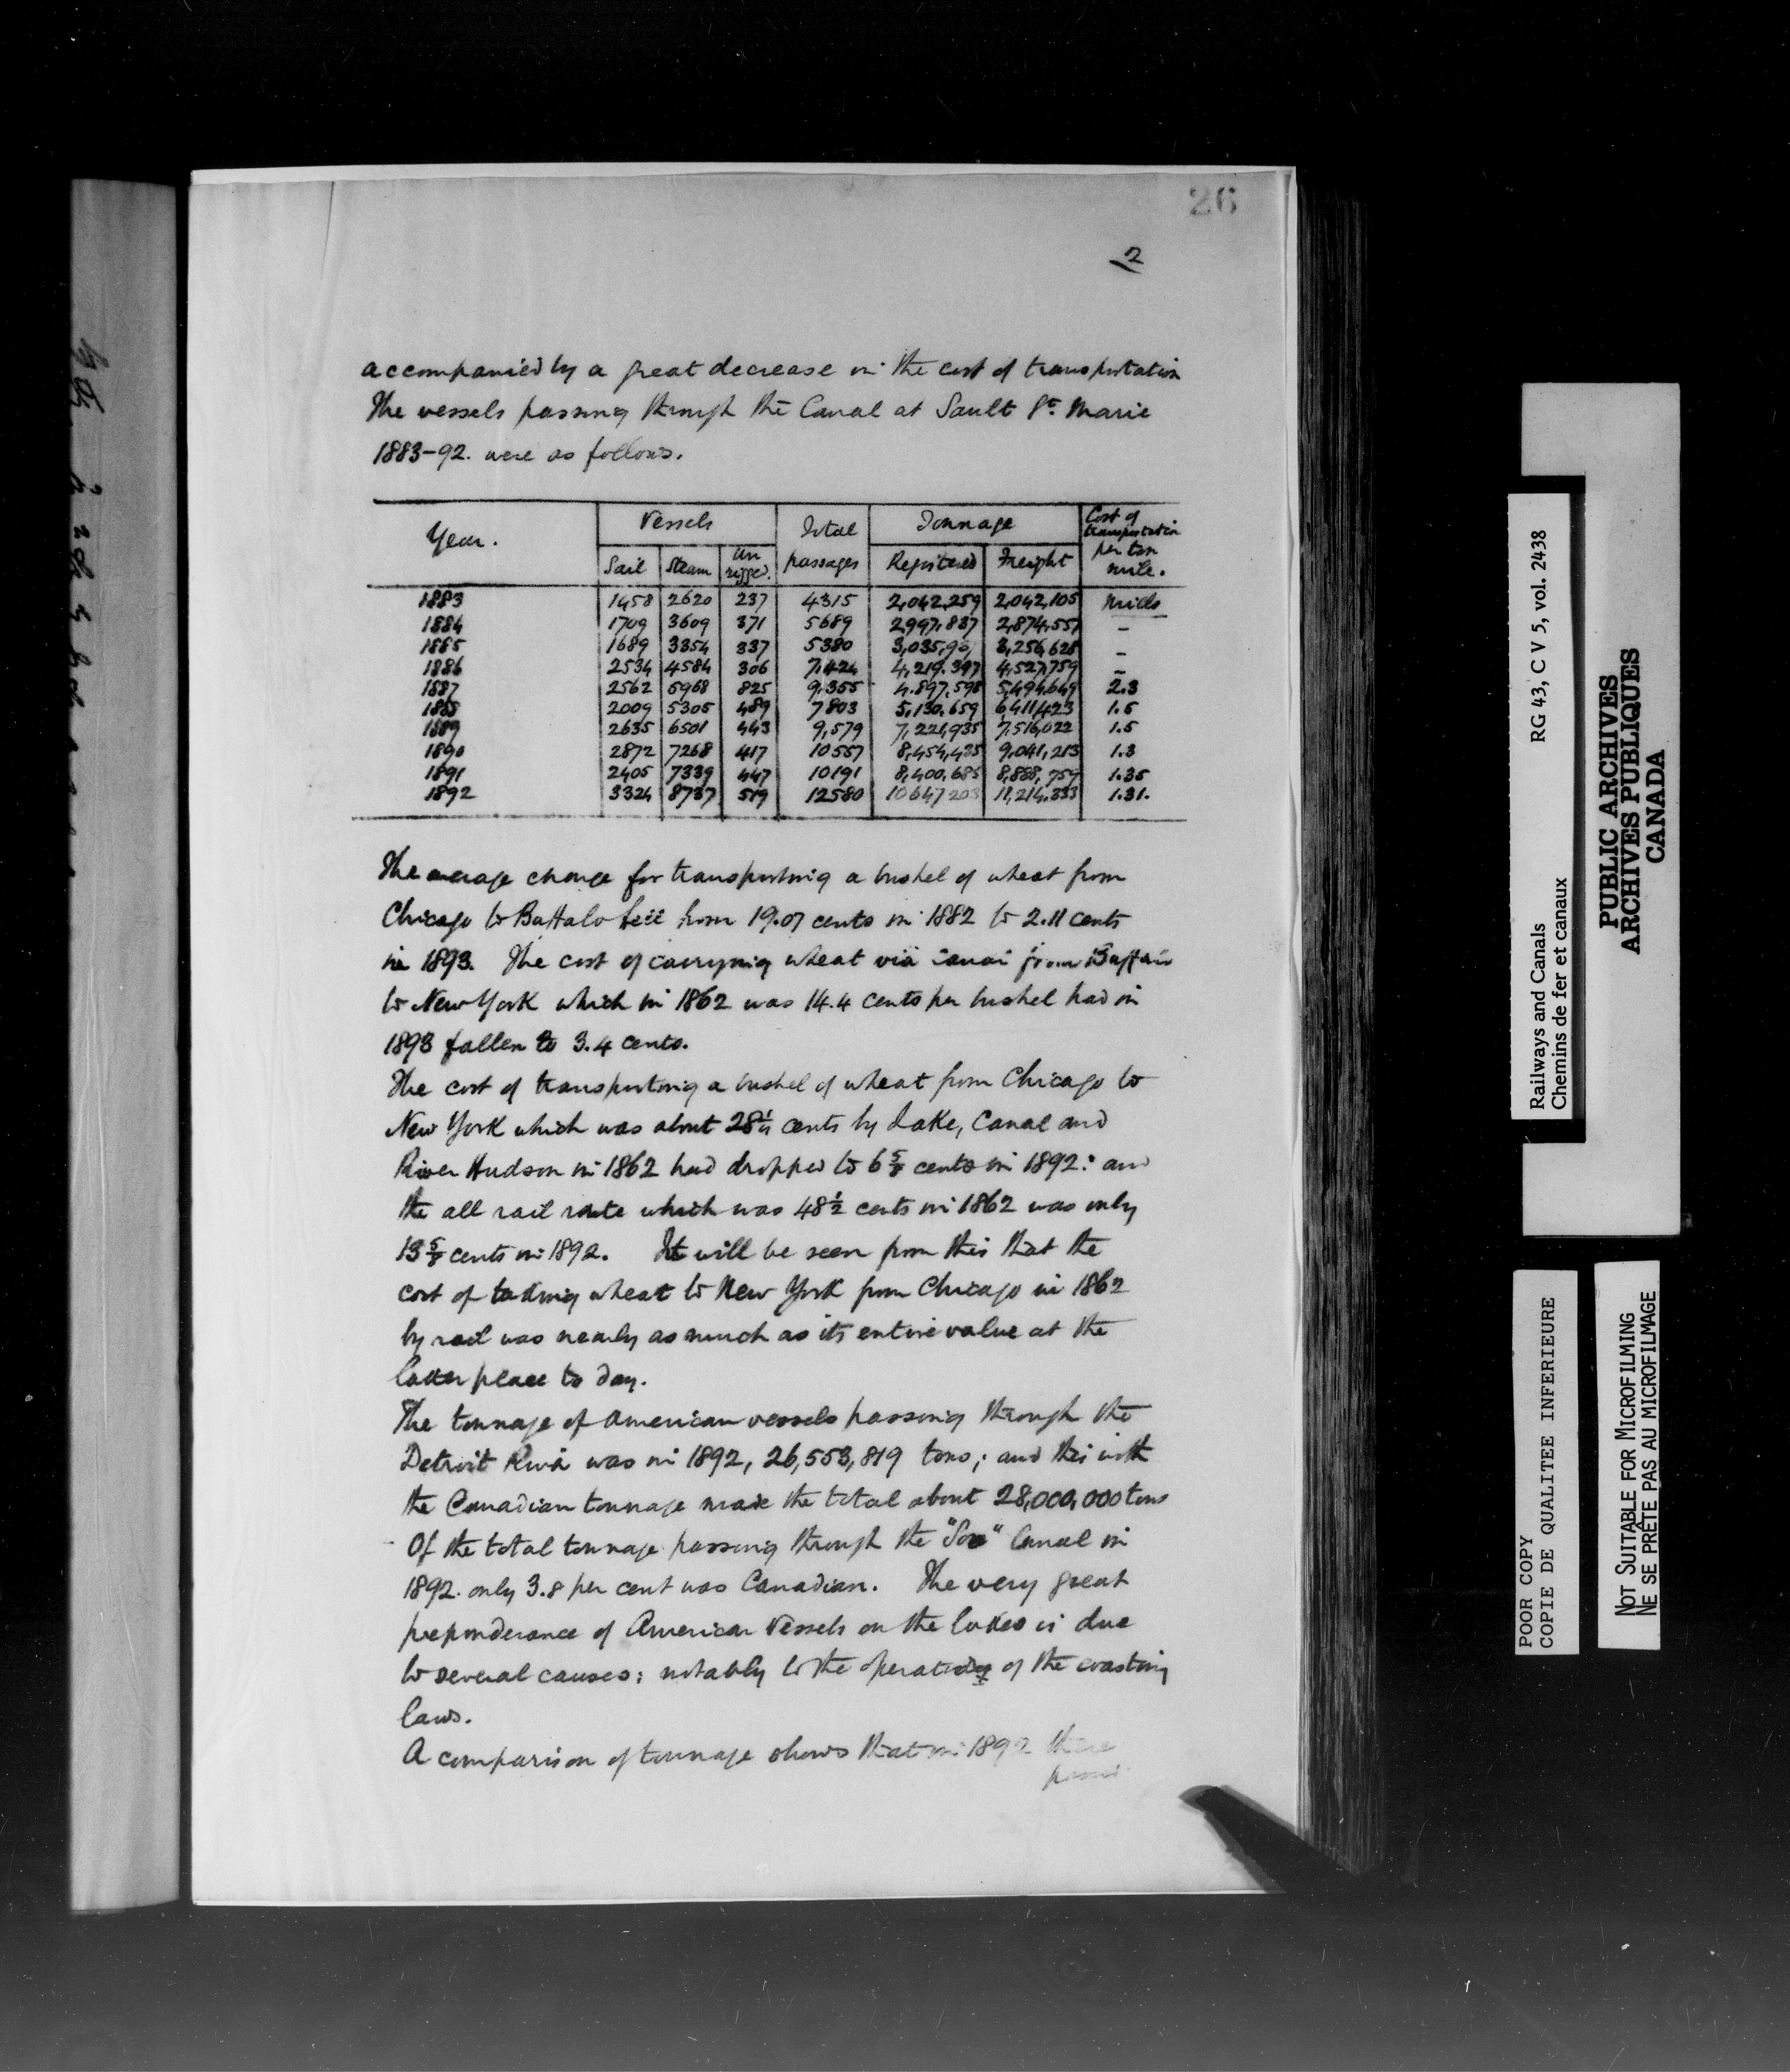 26
2
accompanied by a great decrease in the cost of transportation
The vessels passing through the Canal at Sault St. Marie
1883-92. were as follows.
Year. Vessels Total passages Tonnage Cost of transportation per ton mile.
Sail Steam Un rigged. Registered Freight
1883 1458 2620 237 4315 2,042,259 2,042,105 mills
1884 1709 3609 371 5689 2,997,837 2,874,557 –
1885 1689 3354 337 5380 3,035,9 3,256,628 –
1886 2534 4584 306 7,424 4,219.397 4,527,759 –
1887 2562 5968 825 9,355 4.897,598 5,494,649 2.3
1888 2009 5305 489 7803 5,130.659 6,411,423 1.5
1889 2635 6501 443 9,579 7,221,935 7,516,022 1.5
1890 2872 7268 417 10557 8,454,435 9,041,213 1.3
1891 2405 7339 447 10191 8,400,685 8,888,759 1.35
1892 3324 8737 519 12580 10647203 11,214.333 1.31.
The average charge for transporting a bushel of wheat from
Chicago to Buffalo fell from 19.07 cents in 1882 to 2.11 cents
in 1893. The cost of carrying wheat via canal from Buffalo
to New York which in 1862 was 14.4 cents per bushel had in
1893 fallen to 3.4 cents.
The cost of transporting a bushel of wheat from Chicago to
New York which was about 28¼ cents by Lake, Canal and
River Hudson in 1862 had dropped to 6⅝ cents in 1892: and
the all rail route which was 48½ cents in 1862 was only
13⅝ cents in 1892. It will be seen from this that the
cost of taking wheat to New York from Chicago in 1862
by rail was nearly as much as its entire value at the
latter place to day.
The tonnage of American vessels passing through the
Detroit River was in 1892, 26,553,819 tons; and this with
the Canadian tonnage made the total about 28,000,000 tons
Of the total tonnage passing through the "Soo" Canal in
1892. only 3.8 per cent was Canadian. The very great
preponderance of American Vessels on the lakes is due
to several causes: notably to the operation of the coasting
laws.
A comparison of tonnage shows that in 1892 there
passed
Railways and Canals RG 43, C V 5, vol. 2438
Chemins de fer et canaux
PUBLIC ARCHIVES
ARCHIVES PUBLIQUES
CANADA
POOR COPY
COPIE DE QUALITEE INFERIEURE
NOT SUITABLE FOR MICROFILMING
NE SE PRÊTE PAS AU MICROFILMAGE